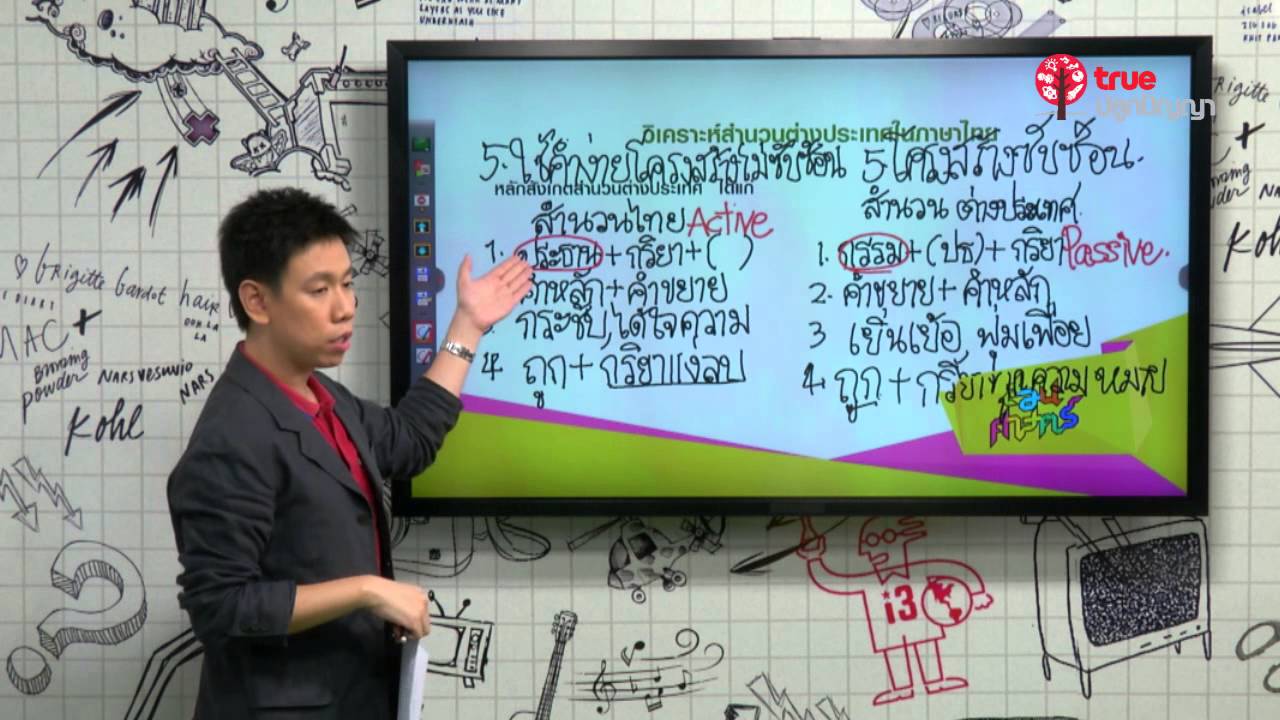 true
ปลูกปัญญา
วิเคราะห์สำนวนต่างประเทศในภาษาไทย
5. ใช้คำง่ายโครงสร้างไม่ซับซ้อน
หลักสังเกตสำนวนต่างประเทศ ได้แก่
สำนวนไทย Active
1. ประธาน + กริยา + ( )
คำหลัก + คำขยาย
กระชับ, ได้ใจความ
4 ถูก + กริยาแง่ลบ
5 โครงสร้างซับซ้อน.
สำนวน ต่างประเทศ
1. กรรม + (ปธ) + กริยา Passive.
2. คำขยาย + คำหลัก
3 เยิ่นเย้อ, ฟุ่มเฟือย
4. ถูก + กริยา ความ หมาย
Brigitte Bardot hair
OOH LA LA
MAC +
powder
NARS VESUVIO
NARS
Kohl
LAYERS AS YOU LIKE
UNDERNEATH
Brigitte
Kohl
i3